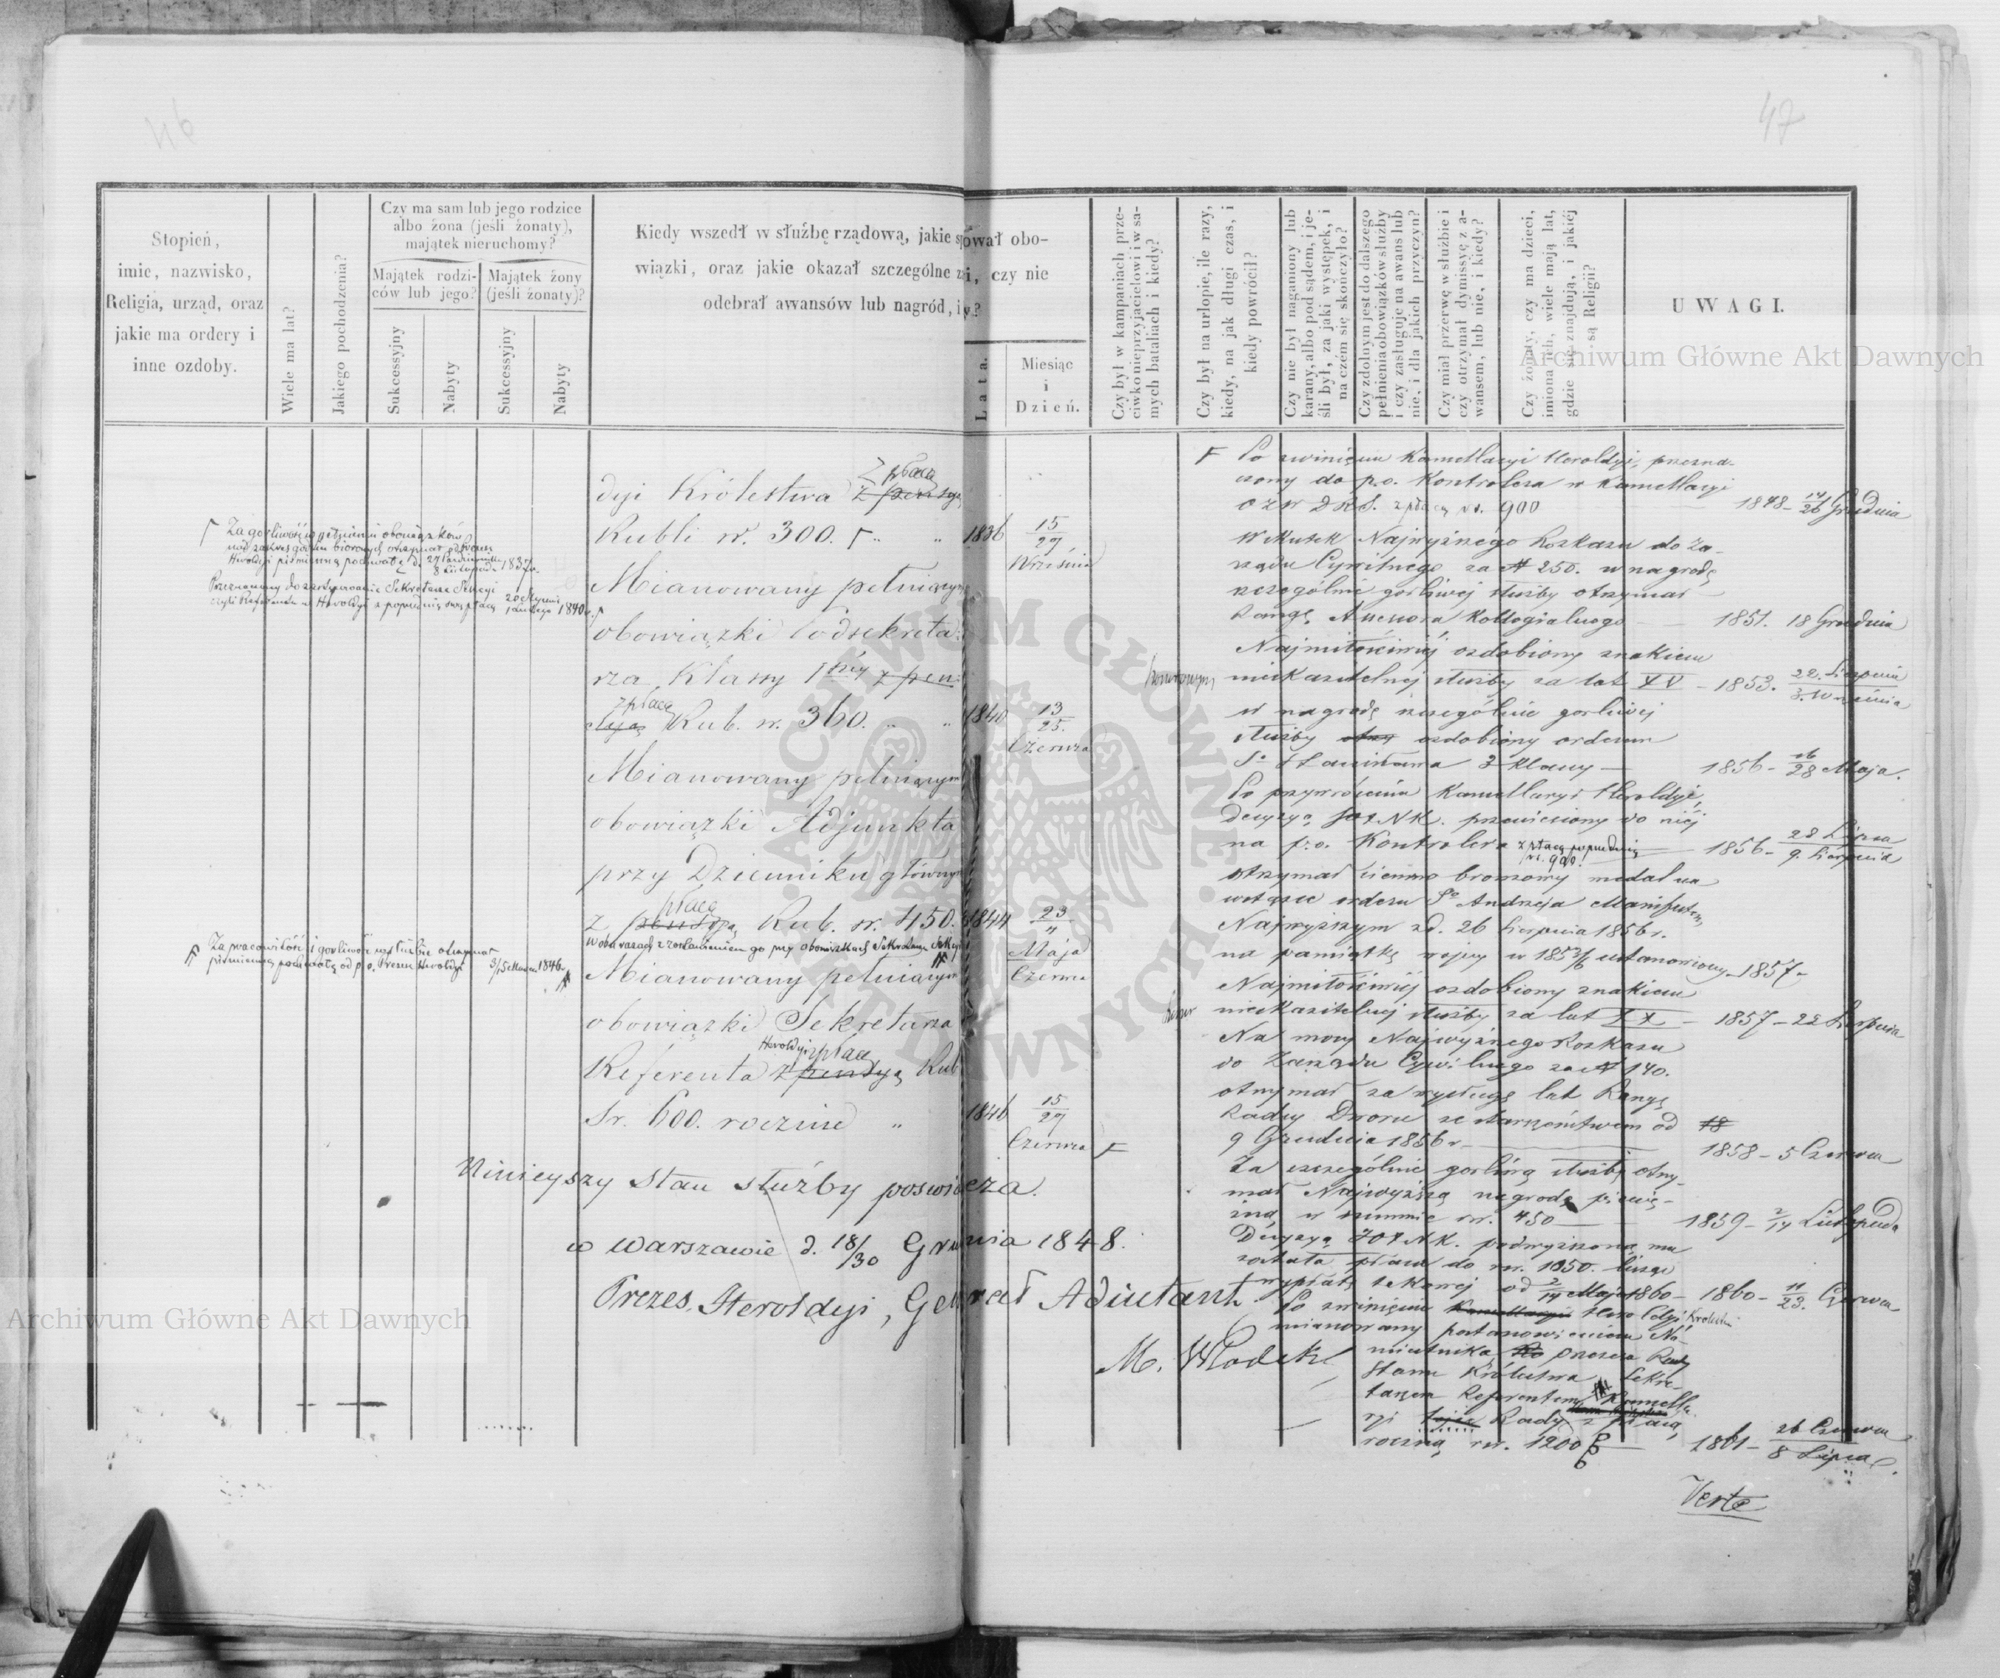 46
47
Stopień,
imie, nazwisko,
Religia, urząd, oraz
jakie ma ordery i
inne ozdoby.
Wiele ma lat?
Jakiego pochodzenia?
Czy ma sam lub jego rodzice
albo żona (jeśli żonaty),
majątek nieruchomy?
Majątek rodzi-
ców lub jego?
Majątek żony
(jeśli żonaty)?
Sukcessyjny
Nabyty
Sukcessyjny
Nabyty
Kiedy wszedł w służbę rządową, jakie spował obo-
wiązki, oraz jakie okazał szczególne zi, czy nie
odebrał awansów lub nagród, i y?
Lata.
Miesiąc
i
Dzień.
Czy był w kampaniach prze-
ciwko nieprzyjacielowi i w sa-
mych bataliach i kiedy?
Czy był na urlopie, ile razy,
kiedy, na jak długi czas, i
kiedy powrócił?
Czy nie był naganiony lub
karany, albo pod sądem, i je-
śli był, za jaki występek, i
na czém się skończyło?
Czy zdolnym jest do dalszego
pełnienia obowiązków służby
i czy zasługuje na awans lub
nie, i dla jakich przyczyn?
Czy miał przerwę w służbie i
czy otrzymał dymissyę z a-
wansem, lub nie, i kiedy?
Czy żonaty, czy ma dzieci,
imiona ich, wiele mają lat,
gdzie się znajdują, i jakiéj
są Religii?
UWAGI.
dyi Królestwa z płacą z pensyą
Rubli sr. 300. " " 1836 15/27 Września
Za gorliwość w pełnieniu obowiązków
Heroldyi piśmienną pochwałę d. 27 Października 8 Listopada 1837 r.
Przeznaczony do zastępowania Sekretarza
czyli Referenta w Heroldyi z poprzednią płacą 20 Stycznia 1 Lutego 1840 r.
Mianowany pełniącym
obowiązki Podsekreta-
rza Klassy 1széj z pen-
syą z płacą Rub. sr. 360. " " 1840 13/25 Czerwca
Mianowany pełniącym
obowiązki Adjunkta
przy Dzienniku głównym
z pensyą płacą Rub. sr. 450. 1844 23/4 Maja Czerwca
Za pracowitość i gorliwość w służbie otrzymał
piśmienną pochwałę od p. o. Prezesa Heroldyi 3/15 Marca 1846 r.
Mianowany pełniącym
obowiązki Sekretarza
Referenta Heroldyi z płacą z pensyą Rub
Sr. 600. rocznie " 1846 15/27 Czerwca
Niniejszy Stan służby poswiadcza.
w Warszawie d. 18/30 Grudnia 1848.
Prezes Heroldyi, Generał Adiutant
M. Włodek
Po zwinięciu Kancellaryi Heroldyi, przezna-
czony do p.o. Kontrolera w Kancellaryi
z płacą rs. 900 1848 - 14/26 Grudnia
W skutek Najwyższego Rozkazu do Za-
rządu Cywilnego za № 250. w nagrodę
szczególnie gorliwéj służby otrzymał
Rangę Assessora Kollegialnego 1851. 18 Grudnia
Najmiłościwiéj ozdobiony znakiem
honorowym nieskazitelnéj służby za lat XV - 1853. 22 Sierpnia 3 Września
w nagrodę szczególnie gorliwéj
służby ozdobiony orderem
So Stanisława 3 klassy 1856 - 16/28 Maja.
Po przywróceniu Kancellaryi Heroldyi,
Decyzyą JO X NK. przeniesiony do niéj
na p.o. Kontrolera z płacą poprzednią rs. 900. 1856 - 28 Lipca 9 Sierpnia
otrzymał ciemno bronzowy medal na
wstążce orderu So Andrzeja Manifestem
Najwyższym z d. 26 Sierpnia 1856 r.
na pamiątkę wojny w 1853/6 ustanowiony - 1857 -
Najmiłościwiéj ozdobiony znakiem
nieskazitelnéj służby za lat XX - 1857 - 22 Sierpnia
Na mocy Najwyższego Rozkazu
do Zarządu Cywilnego za № 140.
otrzymał za wysługę lat Rangę
Radcy Dworu ze starszeństwem od
9 Grudnia 1856 r. 1858 - 5 Czerwca
Za szczególnie gorliwą służbę otrzy-
mał Najwyższą nagrodę pienię-
żną w summie rs. 450 1859 - 2/14 Listopada
Decyzyą JO X NK. podwyższoną mu
została płaca do rs. 1050. licząc
wypłatę takowéj od 2/14 Maja 1860 - 1860 - 11/23 Czerwca
Po zwinięciu Kancellaryi Heroldyi Królestwa
mianowany postanowieniem Na-
miestnika prezesa Rady
Stanu Królestwa Sekre-
tarzem Referentem Kancella-
ryi tejże Rady z płacą
roczną rsr. 1200 1861 - 26 Czerwca 8 Lipca
Verte
Archiwum Główne Akt Dawnych
Archiwum Główne Akt Dawnych
ARCHIWUM GŁÓWNE AKT DAWNYCH